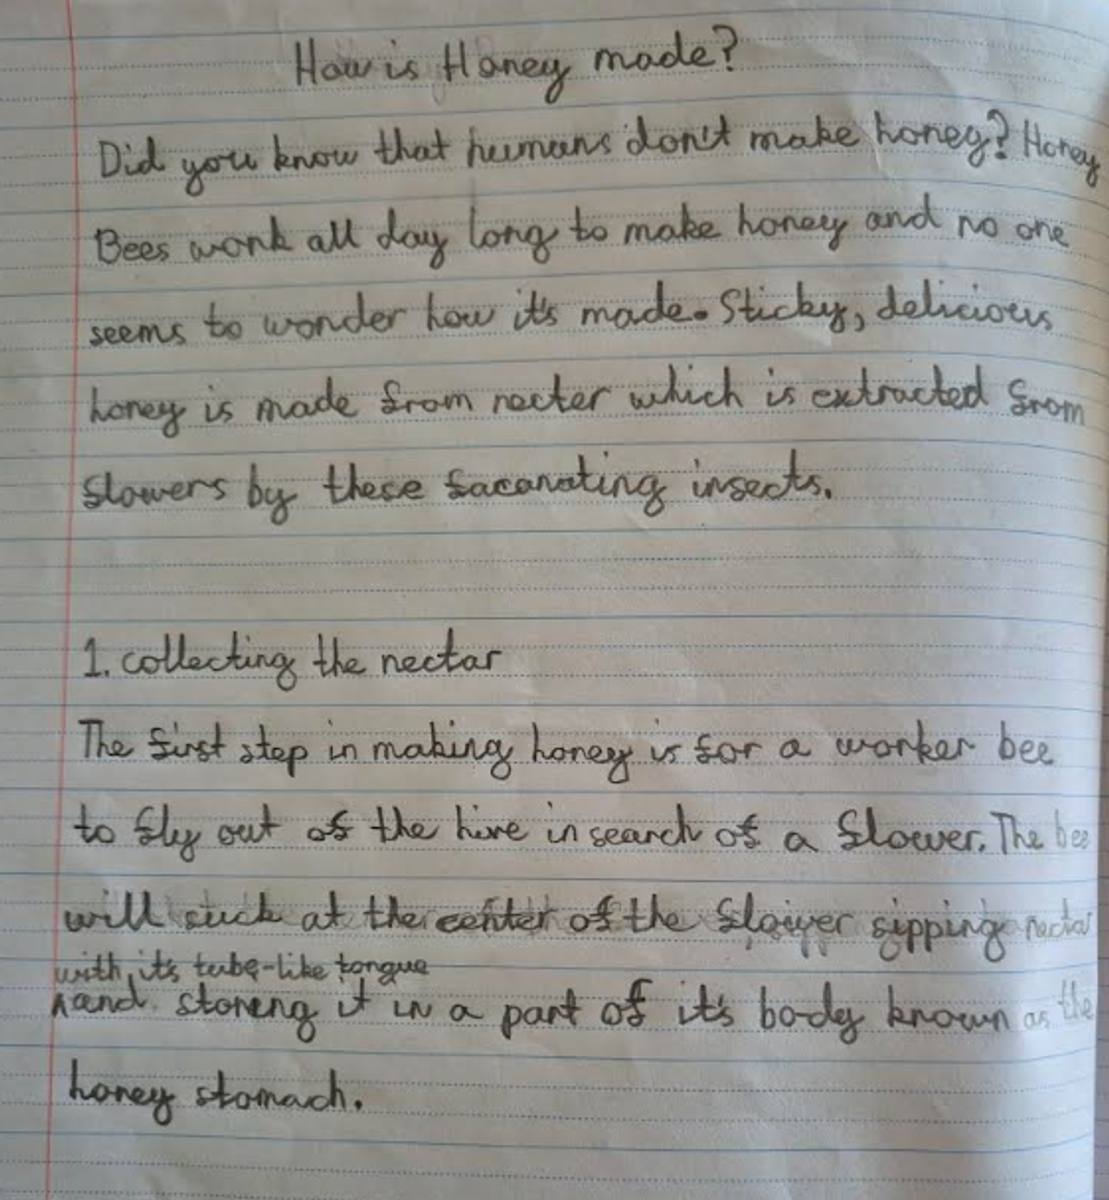 How is Honey made?
Did you know that humans don't make honey? Honey
Bees work all day long to make honey and no one
seems to wonder how it's made. Sticky, delicious
honey is made from necter which is extracted from
flowers by these facanating insects.
1. collecting the nectar
The first step in making honey is for a worker bee
to fly out of the hive in search of a flower. The bee
will suck at the center of the flower sipping nectar
with its tube-like tongue
and storeng it in a part of it's body known as the
honey stomach.